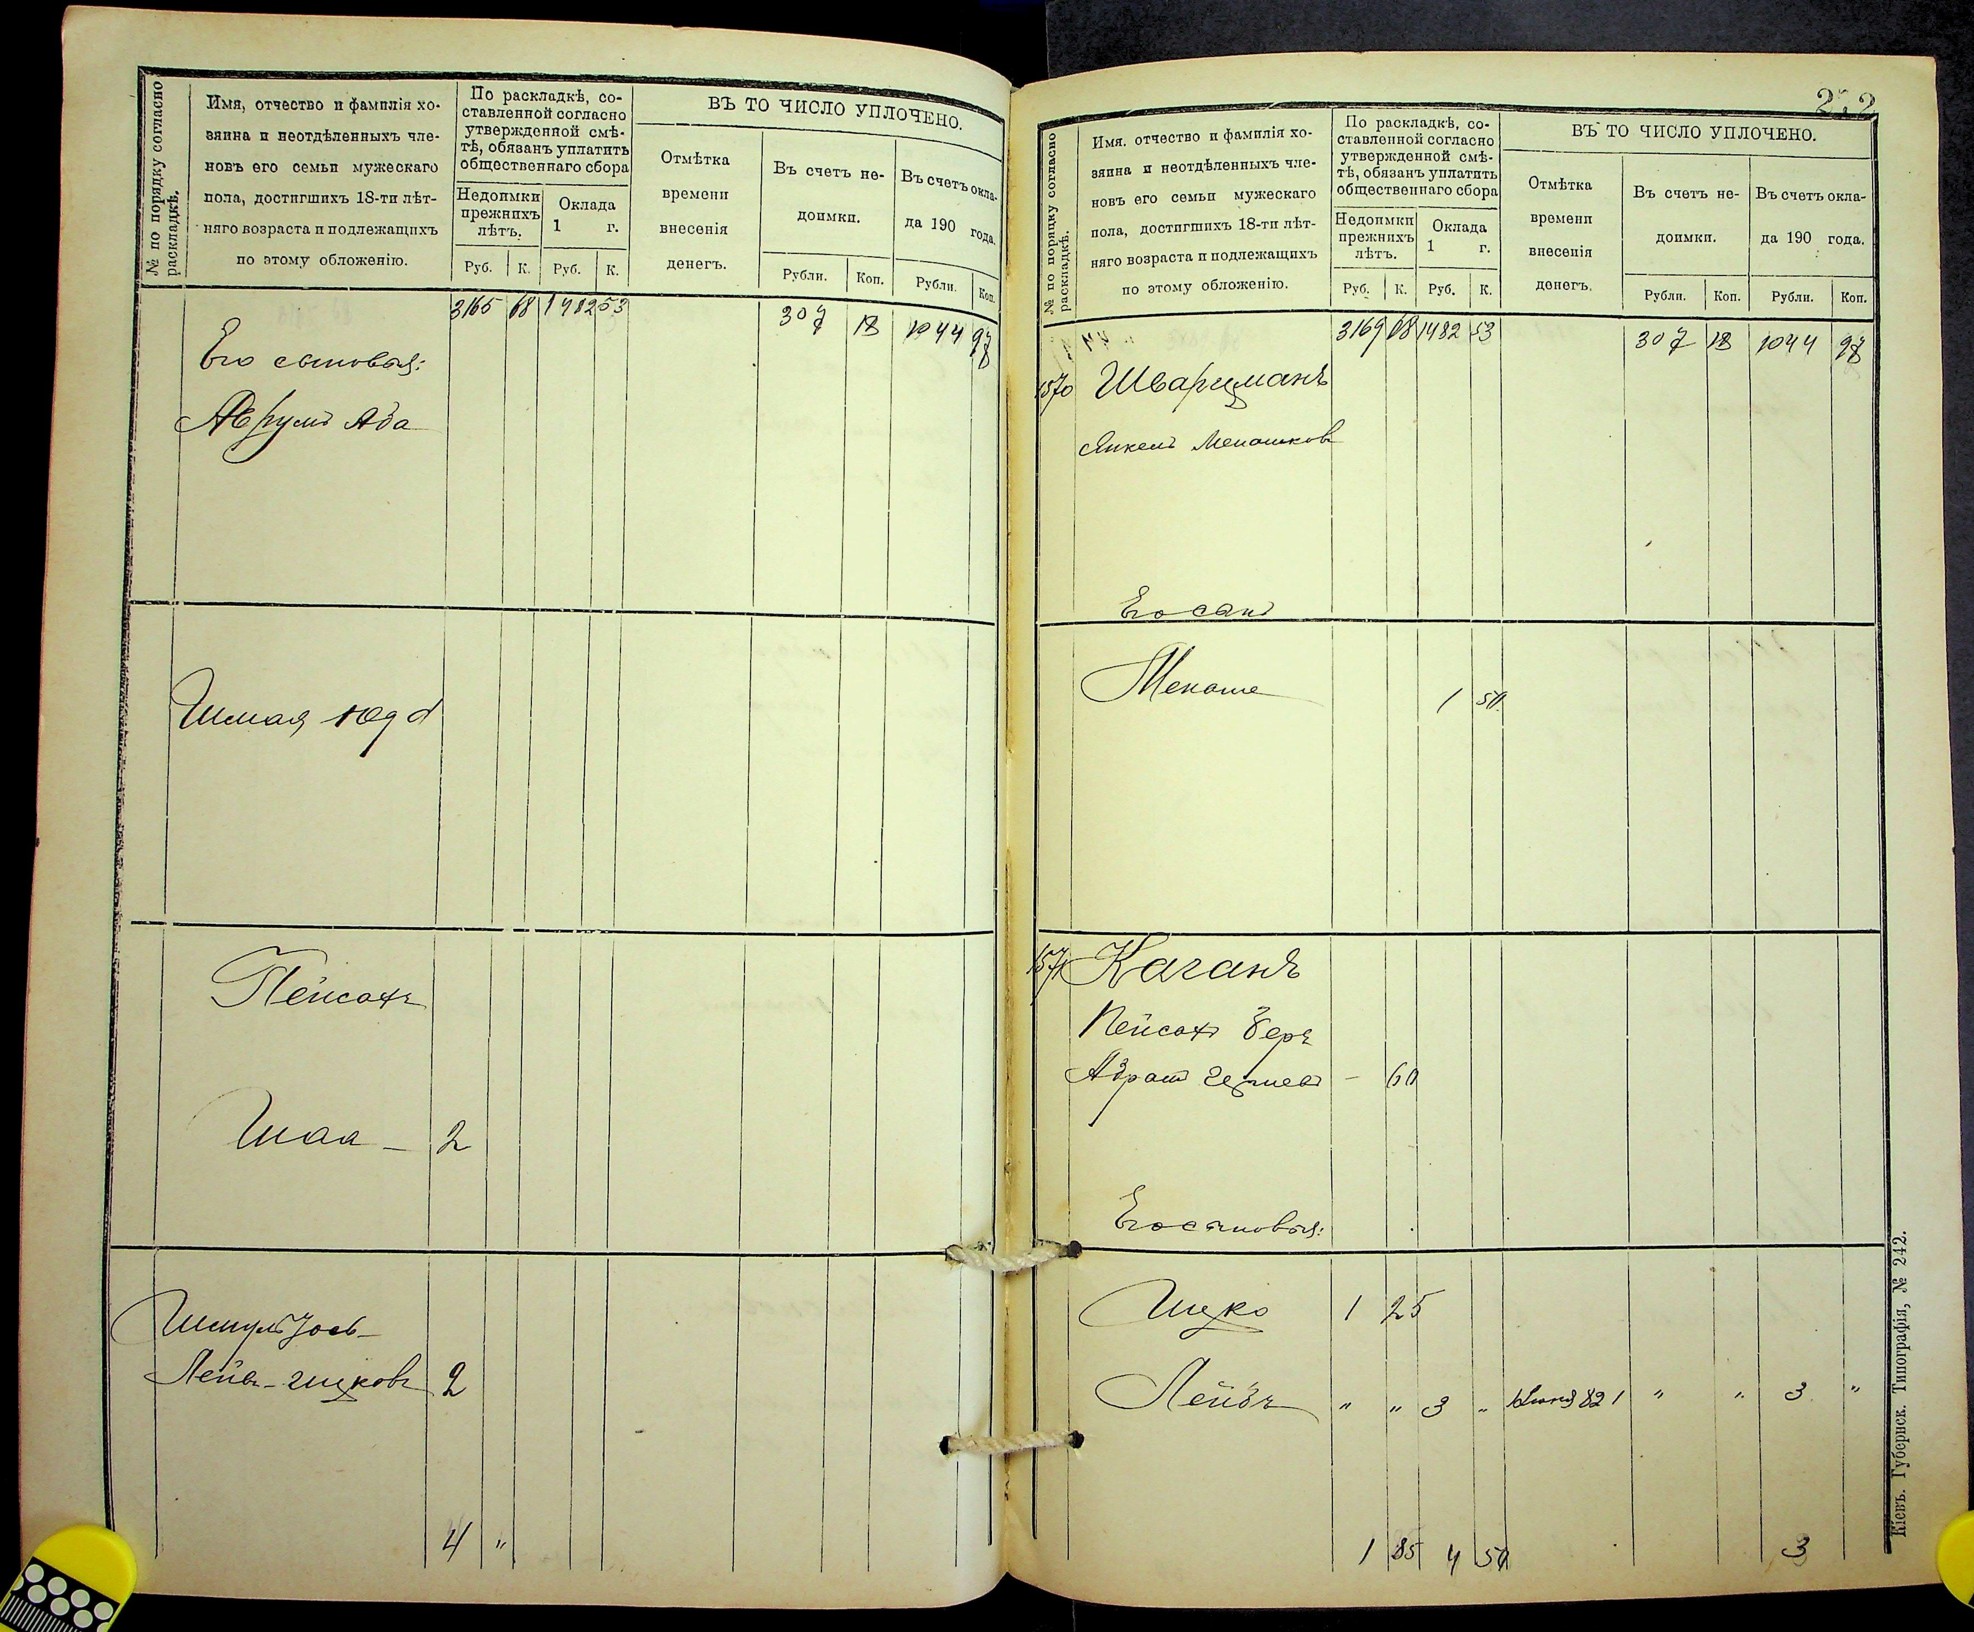 № по порядку согласно
раскладкѣ.
Имя, отчество и фамилія хо-
зяина и неотдѣленныхъ чле-
новъ его семьи мужескаго
пола, достигшихъ 18-ти лѣт-
няго возраста и подлежащихъ
по этому обложенію.
По раскладкѣ, со-
ставленной согласно
утвержденной смѣ-
тѣ, обязанъ уплатить
общественнаго сбора
Недоимки
прежнихъ
лѣтъ.
Оклада
1 г.
Руб. К. Руб. К.
ВЪ ТО ЧИСЛО УПЛОЧЕНО.
Отмѣтка
времени
внесенія
денегъ.
Въ счетъ не-
доимки.
Въ счетъ окла-
да 190 года.
Рубли. Коп. Рубли. Коп.
3165 68 1482 53 307 18 1044 97
Его сыновья:
Аврумъ Аба
Шмая Юдa
Пейсахъ
Шая - 2
Шмуль Іось-
Лейб-Ицковъ 2
4 "
272
№ по порядку согласно
раскладкѣ.
Имя, отчество и фамилія хо-
зяина и неотдѣленныхъ чле-
новъ его семьи мужескаго
пола, достигшихъ 18-ти лѣт-
няго возраста и подлежащихъ
по этому обложенію.
По раскладкѣ, со-
ставленной согласно
утвержденной смѣ-
тѣ, обязанъ уплатить
общественнаго сбора
Недоимки
прежнихъ
лѣтъ.
Оклада
1 г.
Руб. К. Руб. К.
ВЪ ТО ЧИСЛО УПЛОЧЕНО.
Отмѣтка
времени
внесенія
денегъ.
Въ счетъ не-
доимки.
Въ счетъ окла-
да 190 года.
Рубли. Коп. Рубли. Коп.
3169 68 1482 53 307 18 1044 97
1570 Шварцманъ
Янкель Менашковъ
Его сынъ
Менаше 1 50
1571 Каганъ
Пейсахъ Беръ
- 60
Его сыновья:
Ицко 1 25
Лейбъ " " 3 " 821 " " 3 "
1 85 4 50 3
Кіевъ. Губернск. Типографія, № 242.